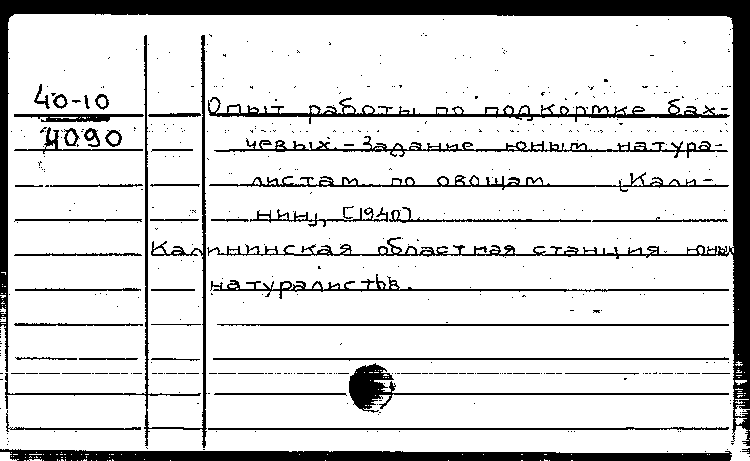 40-10
4090
Опыт работы по подкормке бах-
чевых. – Задание юным натура-
листам по овощам. [Кали-
нин], [1940].
Калининская областная станция юных
натуралистов.